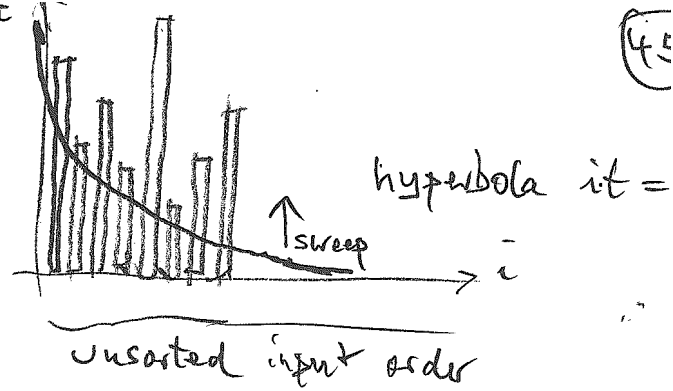 t
45
hyperbola i.t =
sweep
i
unsorted input order